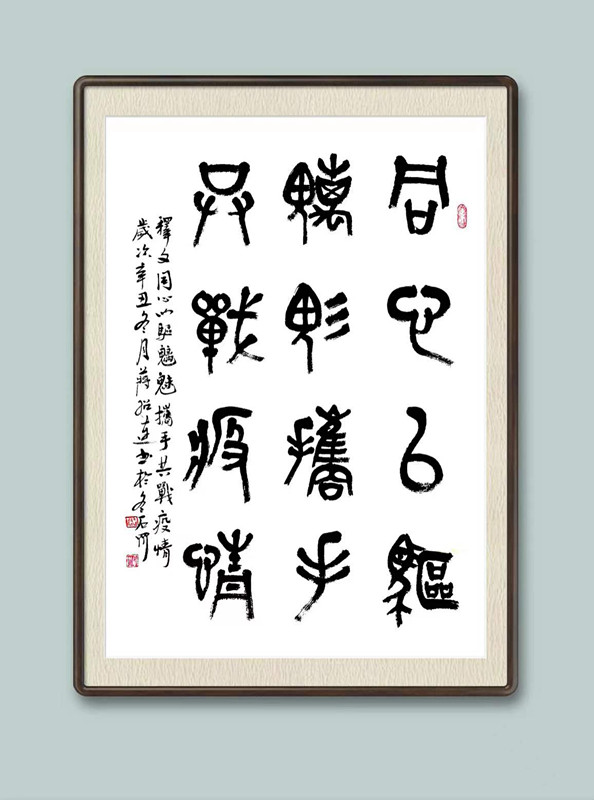 同心以驅
魑魅攜手
共戰疫情
釋文同心以驅魑魅攜手共戰疫情
歲次辛丑冬月蔣 書於冬石